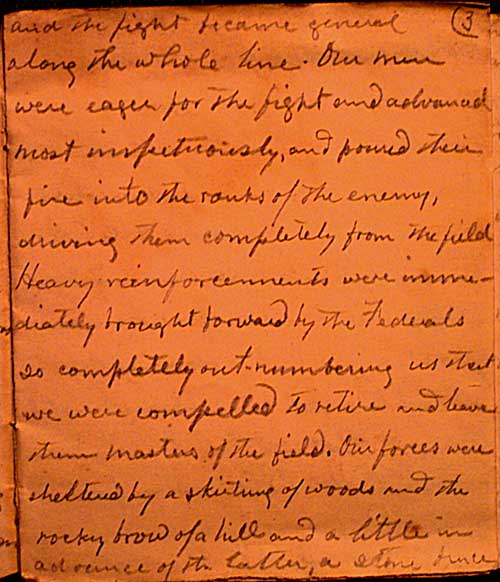 (3)
and the fight became general
along the whole line. Our men
were eager for the fight and advanced
most impetuously, and poured their
fire into the ranks of the enemy,
driving them completely from the field
Heavy reinforcements were imme-
diately brought forward by the Federals
so completely out-numbering us that
we were compelled to retire and leave
them masters of the field. Our forces were
sheltered by a skirting of woods and the
rocky brow of a hill and a little in
advance of the latter, a stone fence